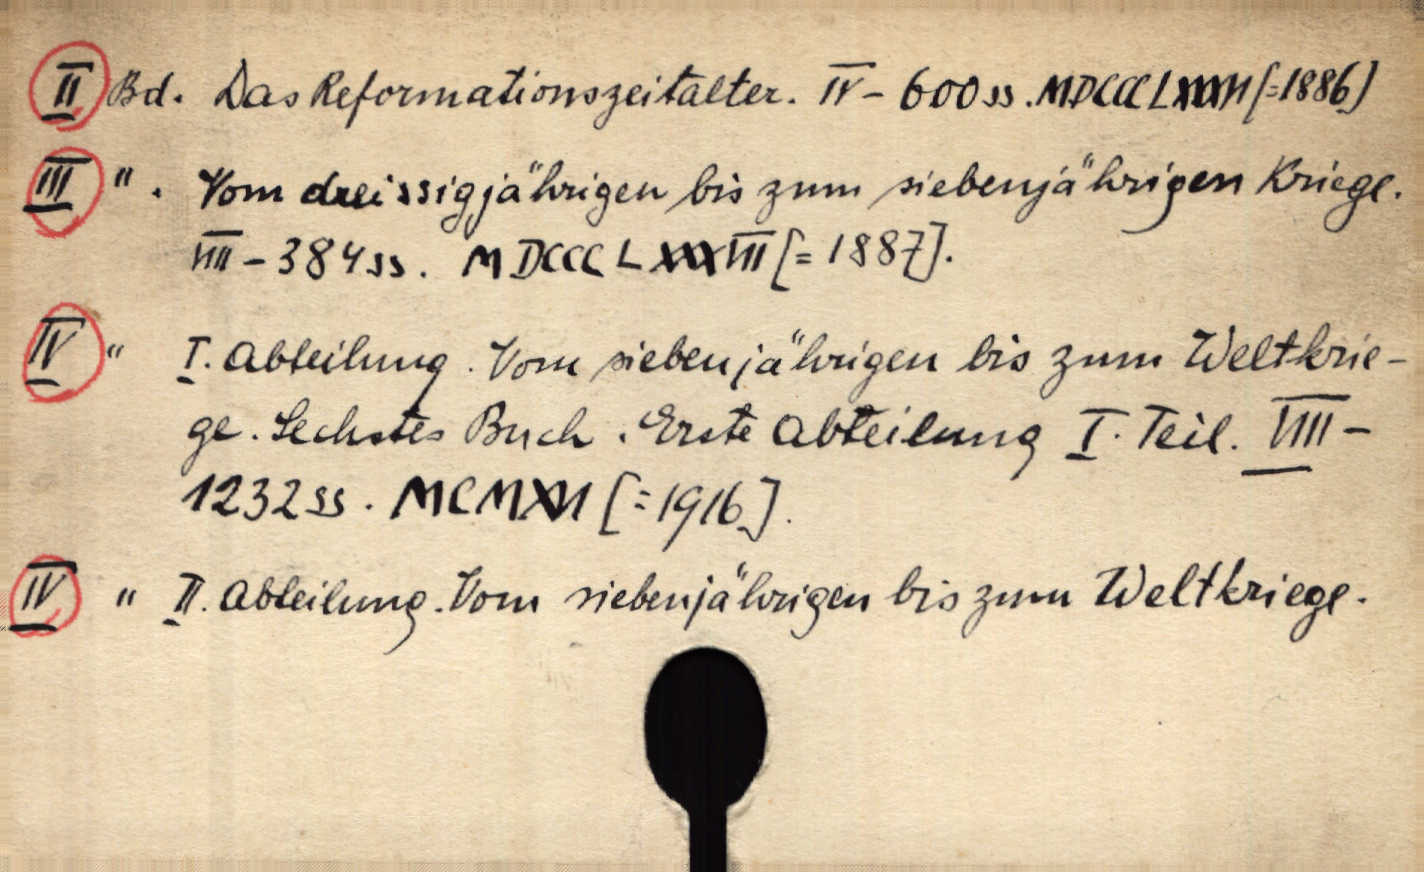 II Bd. Das Reformationszeitalter. IV – 600 ss. MDCCCLXXXVI [=1886]
III " . Vom dreissigjährigen bis zum siebenjährigen Kriege.
VIII – 384 ss. MDCCCLXXXVII [= 1887].
IV " I. Abteilung. Vom siebenjährigen bis zum Weltkrie-
ge. Sechstes Buch. Erste Abteilung I. Teil. VIII –
1232 ss. MCMXVI [=1916].
IV " II. Abteilung. Vom siebenjährigen bis zum Weltkriege.